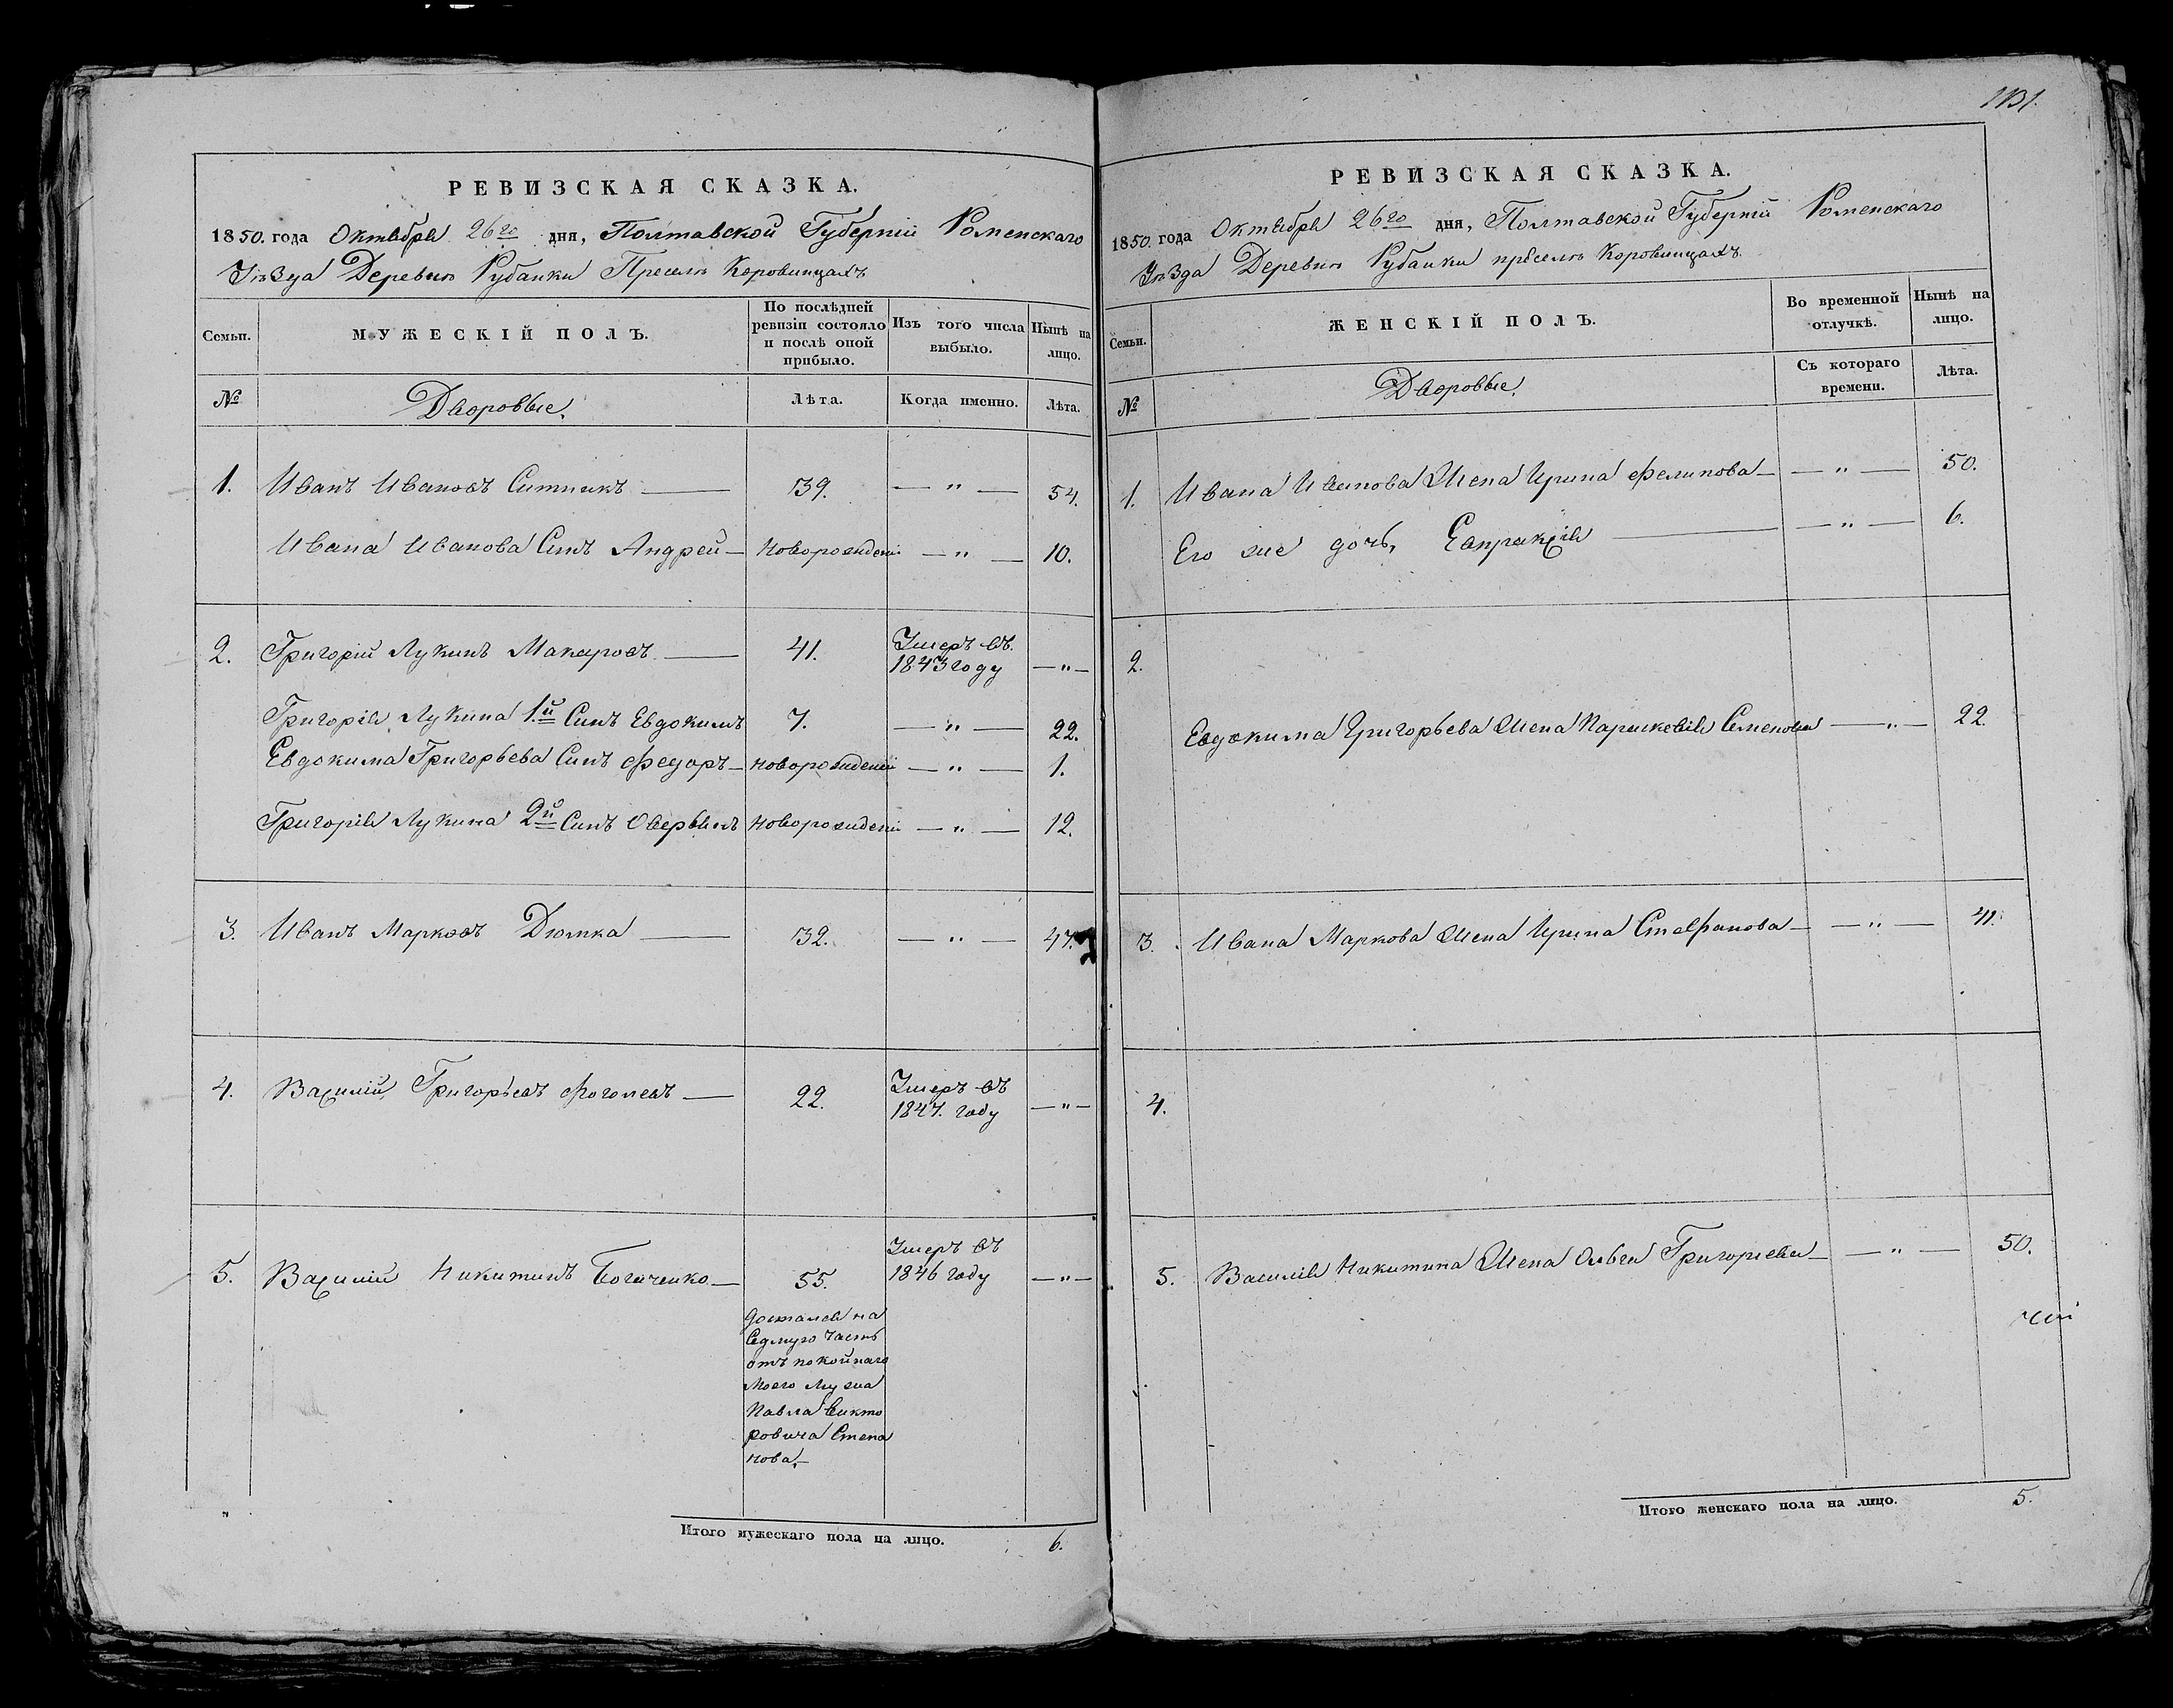 РЕВИЗСКАЯ СКАЗКА.
1850. года Октября 26го дня, Полтавской Губернiи Роменскаго
Уѣзда Деревни Рубанки Пресели Коровинцахъ
Семьи.
МУЖЕСКІЙ ПОЛЪ.
По послѣдней
ревизіи состояло
и послѣ оной
прибыло.
Изъ того числа
выбыло.
Нынѣ на
лицо.
№
Дворовые.
Лѣта.
Когда именно.
Лѣта.
1. Иванъ Ивановъ Ситникъ — 39. — " — 54.
Ивана Иванова Синъ Андрей — новорожденій — " — 10.
2. Григорій Лукинъ Макаровъ — 41. Умеръ въ
1843 году — " —
Григорія Лукина 1.й Синъ Евдокимъ 7. — " — 22.
Евдокима Григорьева Синъ Федоръ — новорожденій — " — 1.
Григорія Лукина 2й Синъ новорожденій — " — 12.
3. Иванъ Марковъ Дюмка — 32. — " — 47.
4. Василій Григорьевъ — 22. Умеръ въ
1847. году — " —
5. Василій Никитинъ Богаченко — 55. Умеръ въ
1846 году — " —
досталса на
Седмую Часть
отъ покойнаго
Моего Мужа
Павла Викто
ровича Степа
нова. —
Итого мужескаго пола на лицо. 6.
1131.
РЕВИЗСКАЯ СКАЗКА.
1850. года Октября 26го дня, Полтавской Губернiи Роменскаго
Уѣзда Деревни Рубанки пресели Коровинцахъ.
Семьи.
ЖЕНСКІЙ ПОЛЪ.
Во временной
отлучкѣ.
Нынѣ на
лицо.
№
Дворовые.
Съ котораго
времени.
Лѣта.
1. Ивана Иванова Жена Ирина Фелипова — — " — 50.
Его же дочь, Евпраксія — — " — 6.
2.
Евдокима Григорьева Жена Параскевія Семенова — " — 22.
3. Ивана Маркова Жена Ирина Стефанова — — " — 41.
4.
5. Василія Никитина Жена Ольга Григорьева — — " — 50.
Итого женскаго пола на лицо. 5.